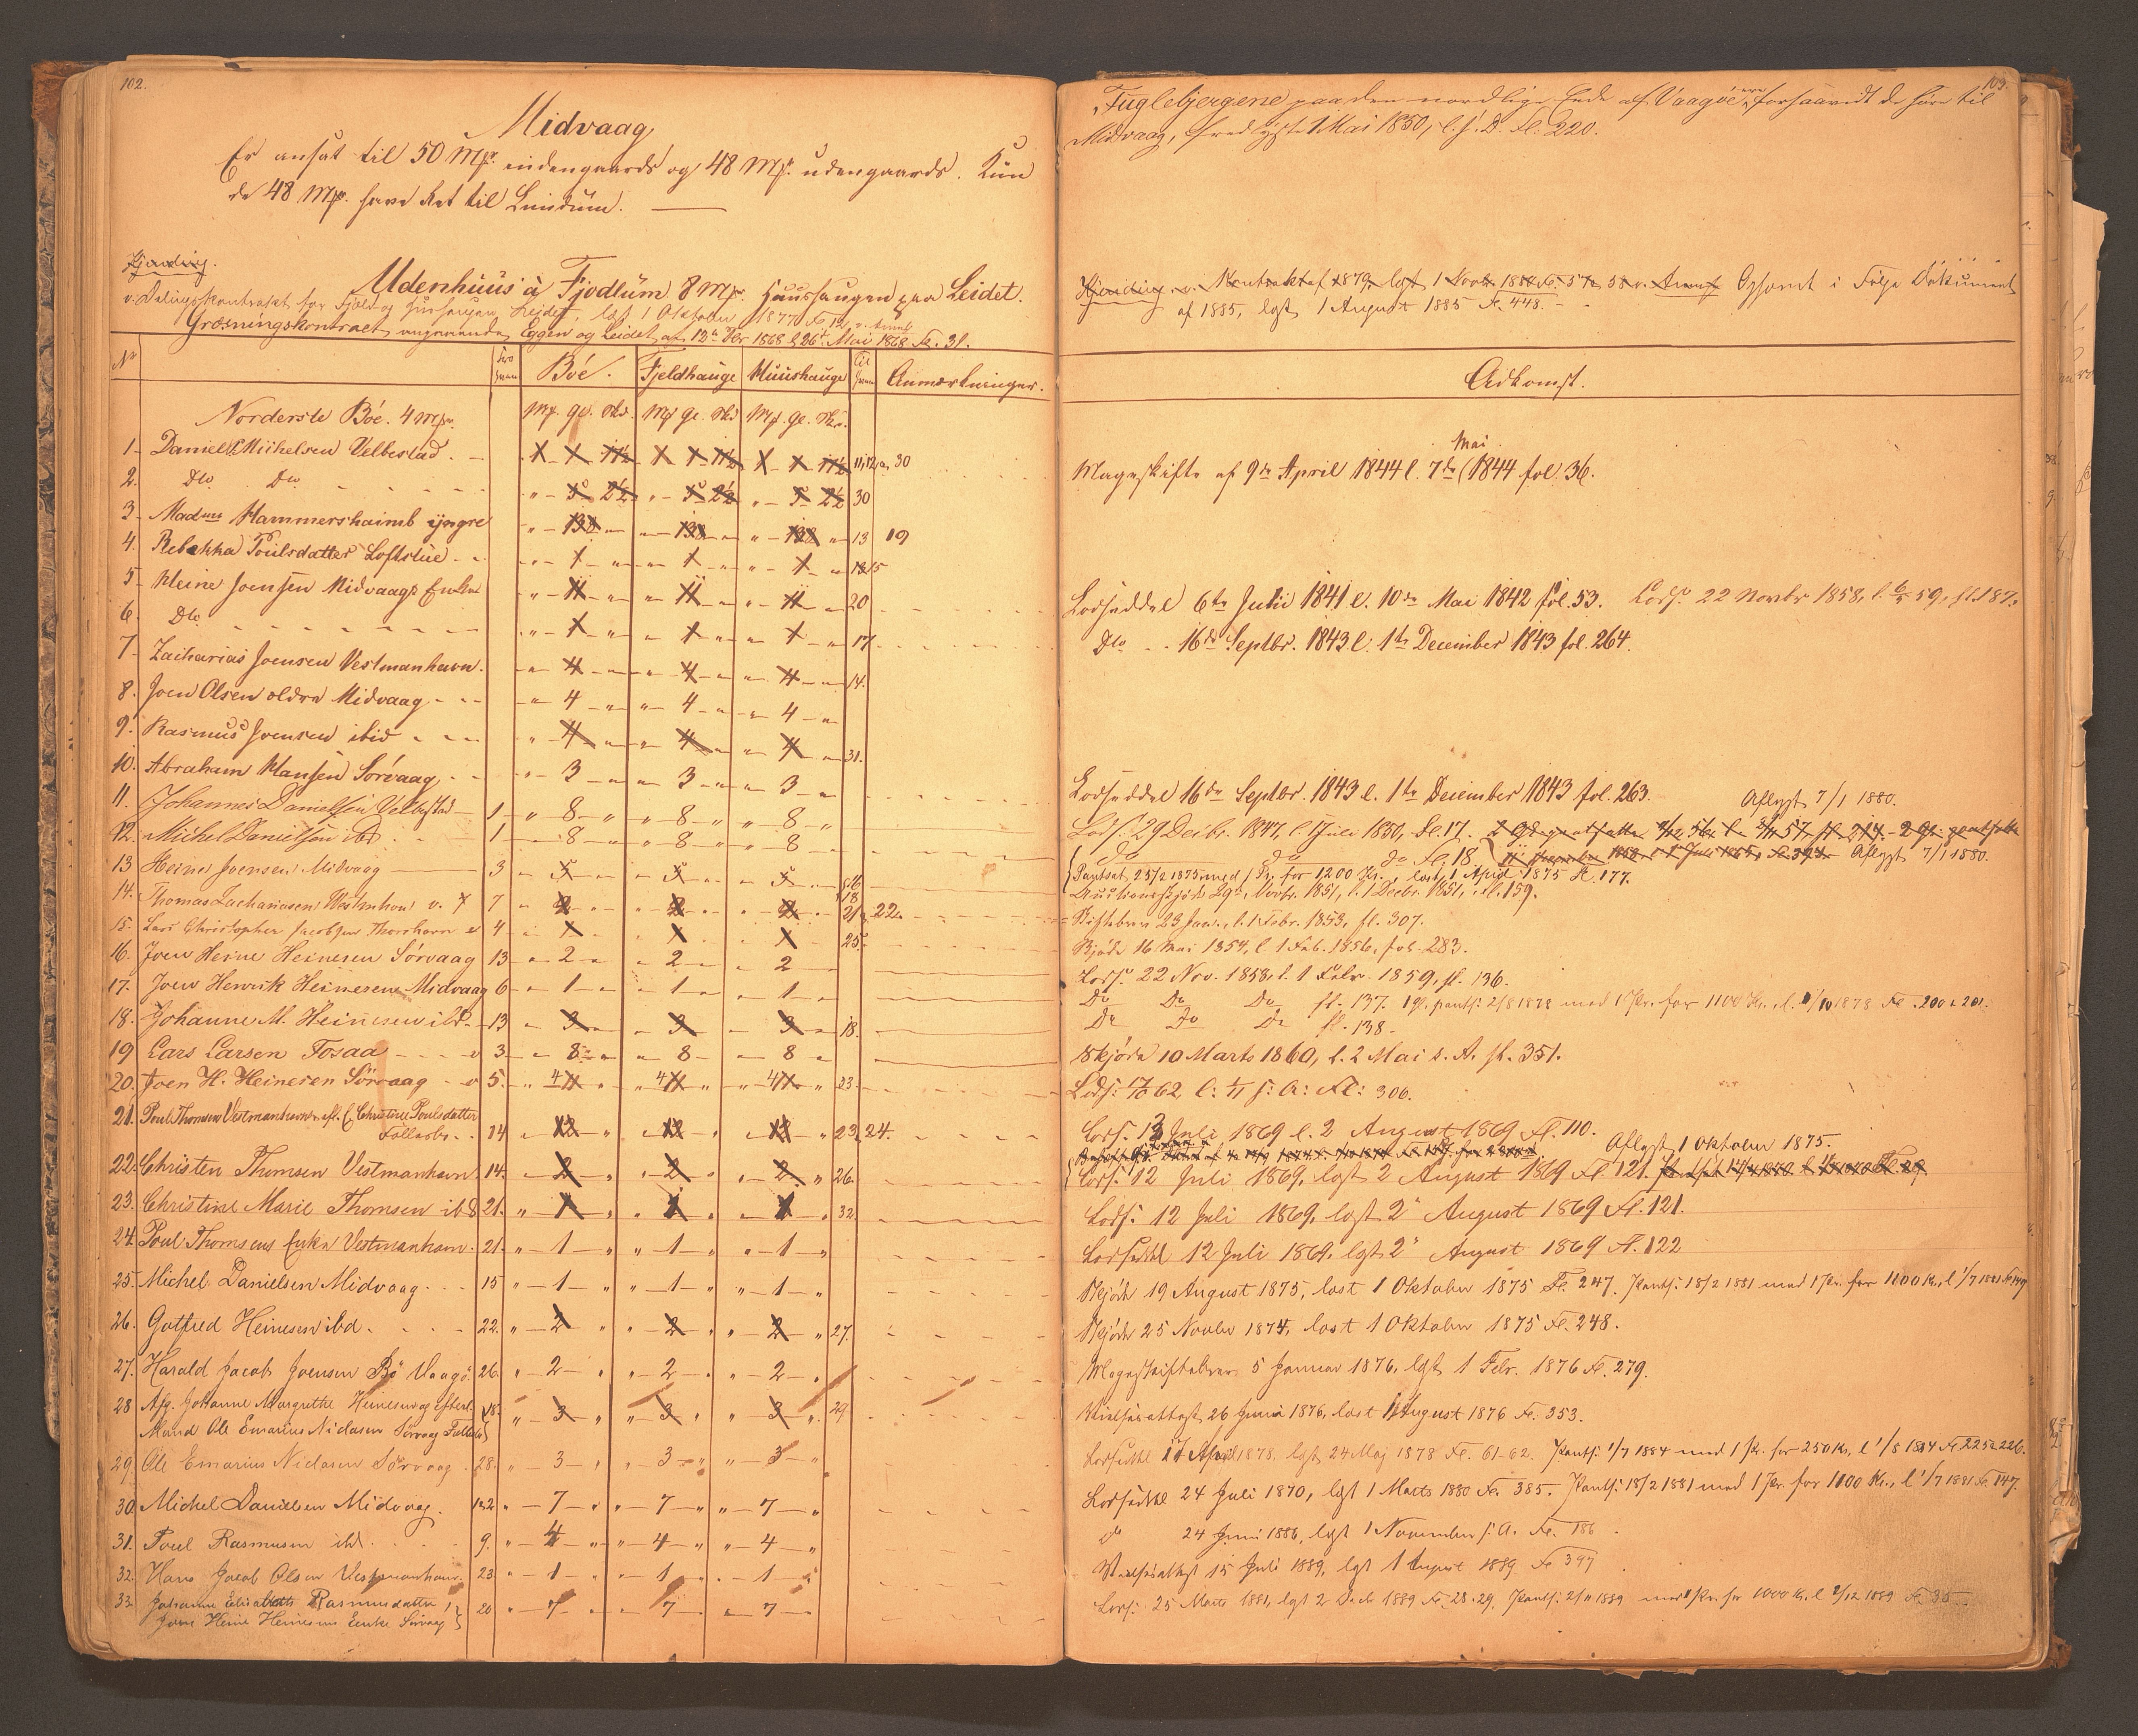 102.
Midvaag
Er ansat til 50 Mk. indengaards og 48 Mk. udengaards. Kun
de 48 Mk. have Ret til Lundum.
Udenhuus à Fjodlum 8 Mk. Huushaugen paa Leidet.
v. Delingskontrakt for Fjeld og Huushaugen Leidet, læst 1 Oktober 1877 Fl. 12, v. Anm.
Græsningskontract angaaende Eggen og Leidet af 12te 1868 l. 26 Mai 1868 Fl. 31.
No Fra Bøe. Fjeldhauge Huushauge Til Anmærkninger.
Norderste Bøe. 4 Mk. Mk. gl. Sk. Mk gl. Sk. Mk. gl. Sk.
1. Daniel Michelsen Velbestad. 11, 12, 30
2. Dto Dto " 5 2½ " 5 2½ " 5 2½ 30
3. Madme Hammershaimb yngre 13 19
4. Rebekka Poulsdatter Loftstue 1 1 1 15
5. Heine Joensen Midvaag 20
6. Dto 1 1 1 17
7. Zacharias Joensen Vestmanhavn. 4 4 4 14.
8. Joen Olsen ældre Midvaag 4 4 4
9. Rasmus Joensen ibid 4 4 4 31.
10. Abraham Hansen Sørvaag 3 3 3
11. Johannes Danielsen Velbestad 1 " 8 " " 8 " " 8 "
12. Michel Danielsen ibd 1 8 8 8
13 Heine Joensen Midvaag 3 5 5 5 16 18
14. Thomas Zachariasen Westmhavn v. 7 7 2 2 2 21, 22.
15. Lars Christopher Jacobsen Thorshavn 4 1 1 1 25.
16. Joen Heine Heinesen Sørvaag 13 2 2 2
17. Joen Henrik Heinesen Midvaag 6 1 1 1
18. Johanne M. Heinesen ibd. 13 3 3 3 18.
19 Lars Larsen Fosaa 3 8 8 8
20. Joen H. Heinesen Sørvaag 5. 4 4 4 23.
21. Poul Thomsen Vestmanhavn & Christine Poulsdatter
Fælleds. 14 12 12 12 23, 24.
22. Christen Thomsen Vestmanhavn 14. 2 2 2 26.
23. Christine Marie Thomsen ibd 21. 1 1 1 32.
24. Poul Thomsens Enke Vestmanhavn. 21. 1 1 1
25. Michel Danielsen Midvaag 15 1 1 1
26. Gotfred Heinesen ibd. 22. 2 2 2 27.
27. Harald Jacob Joensen Bø Vaagø. 26. 2 2 2
28 Afg. Johanne Margrethe Heinesen og Efterl.
Mand Ole Emarius Niclasen Sørvaag Fælleds 18. 3 3 3 29
29. Ole Emarius Niclasen Sørvaag 28. 3 3 3
30. Michel Danielsen Midvaag. 1 & 2 7 7 7
31. Poul Rasmussen ibd. 9. 4 4 4
32. Hans Jacob Olsen Vestmanhavn. 23 1 1 1
33. Johanne Elisabeth Rasmusdatter,
Joen Heine Heinesens Enke Sørvaag 20 7 7 7
103.
Fuglebjergene paa den nordlige Ende af Vaagøe, forsaavidt de høre til
Midvaag, fredlyst 1 Mai 1850, l. s. D. Fl. 220.
Ophævet i Følge Dokument
af 1885, lgst 1 August 1885 Fl. 448.
Adkomst.
Mageskifte af 9de April 1844 l. 7de Mai 1844 fol. 36.
Lodseddel 6te Julii 1841 l. 10de Mai 1842 fol. 53. Lods. 22 Novbr 1858, l. 59, fl. 187.
Dto 16de Septbr. 1843 l. 1te December 1843 fol. 264.
Lodseddel 16de Septbr. 1843 l. 1te December 1843 fol. 263. Aflyst 7/1 1880.
Lods. 29 Decbr. 1847, l. 1 Juli 1850, Fl. 17.
do do do Fl. 18 Aflyst 7/1 1880.
Pantsat 25/2 1875 med 1 Pr. for 1200 Kr., læst 1 April 1875 Fl. 177.
Auctionsskjøde 29de Novbr. 1851, l. 1 Decbr. 1851, fl. 159.
Skiftebrev 23 Jan., l. 1 Febr. 1853, fl. 307.
Skjøde 16 Mai 1854, l 1 Feb. 1856, fol. 283.
Lods. 22 Nov. 1858, l. 1 Febr. 1859, fl. 136.
Do Do Do fl. 137. 1 gl. pants: 2/8 1878 med 1 Pr. for 1100 Kr., l. 1/10 1878 Fl. 200 & 201.
Do Do Do fl. 138.
Skjøde 10 Marts 1860, l. 2 Mai s. A. fl. 351.
Lods: 62, l: s: A: Fl: 306.
Lods. 13 Juli 1869 l. 2 August 1869 Fl. 110.
Aflyst 1 Oktober 1875.
Lods. 12 Juli 1869, lgst 2 August 1869 Fl. 121.
Lods: 12 Juli 1869, lgst 2 August 1869 Fl. 121.
Lodseddel 12 Juli 1869, lgst 2 August 1869 Fl. 122
Skjøde 19 August 1875, læst 1 Oktober 1875 Fl. 247. Pants: 18/2 1881 med 1 Pr. for 1100 Kr., l 1/7 1881 Fl. 147
Skjøde 25 Novbr 1874, læst 1 Oktober 1875 Fl. 248.
Mageskiftebrev 5 Januar 1876, lgst 1 Febr. 1876 Fl. 279.
Vielsesattest 26 Juni 1876, læst 1 August 1876 Fl. 353.
Lodseddel 17 April 1878. lgst 24 Maj 1878 Fl. 61-62. Pants: 1/7 1884 med 1 Pr. for 250 Kr, l 1/8 1884 Fl 225 & 226.
Lodseddel 24 Juli 1870, lgst 1 Marts 1880 Fl. 385. Pants: 18/2 1881 med 1 Pr. for 1100 Kr., l 1/7 1881 Fl. 147.
do 24 Juni 1886, lgst 1 November s: A. Fl. 186
Vielsesattest 15 Juli 1889, lgst 1 August 1889 Fl 397
Lods: 25 Marts 1881, lgst 2 Dec 1889 Fl. 28-29. Pants: 2/11 1889 med Pr. for 1000 Kr. l 2/12 1889 Fl. 35